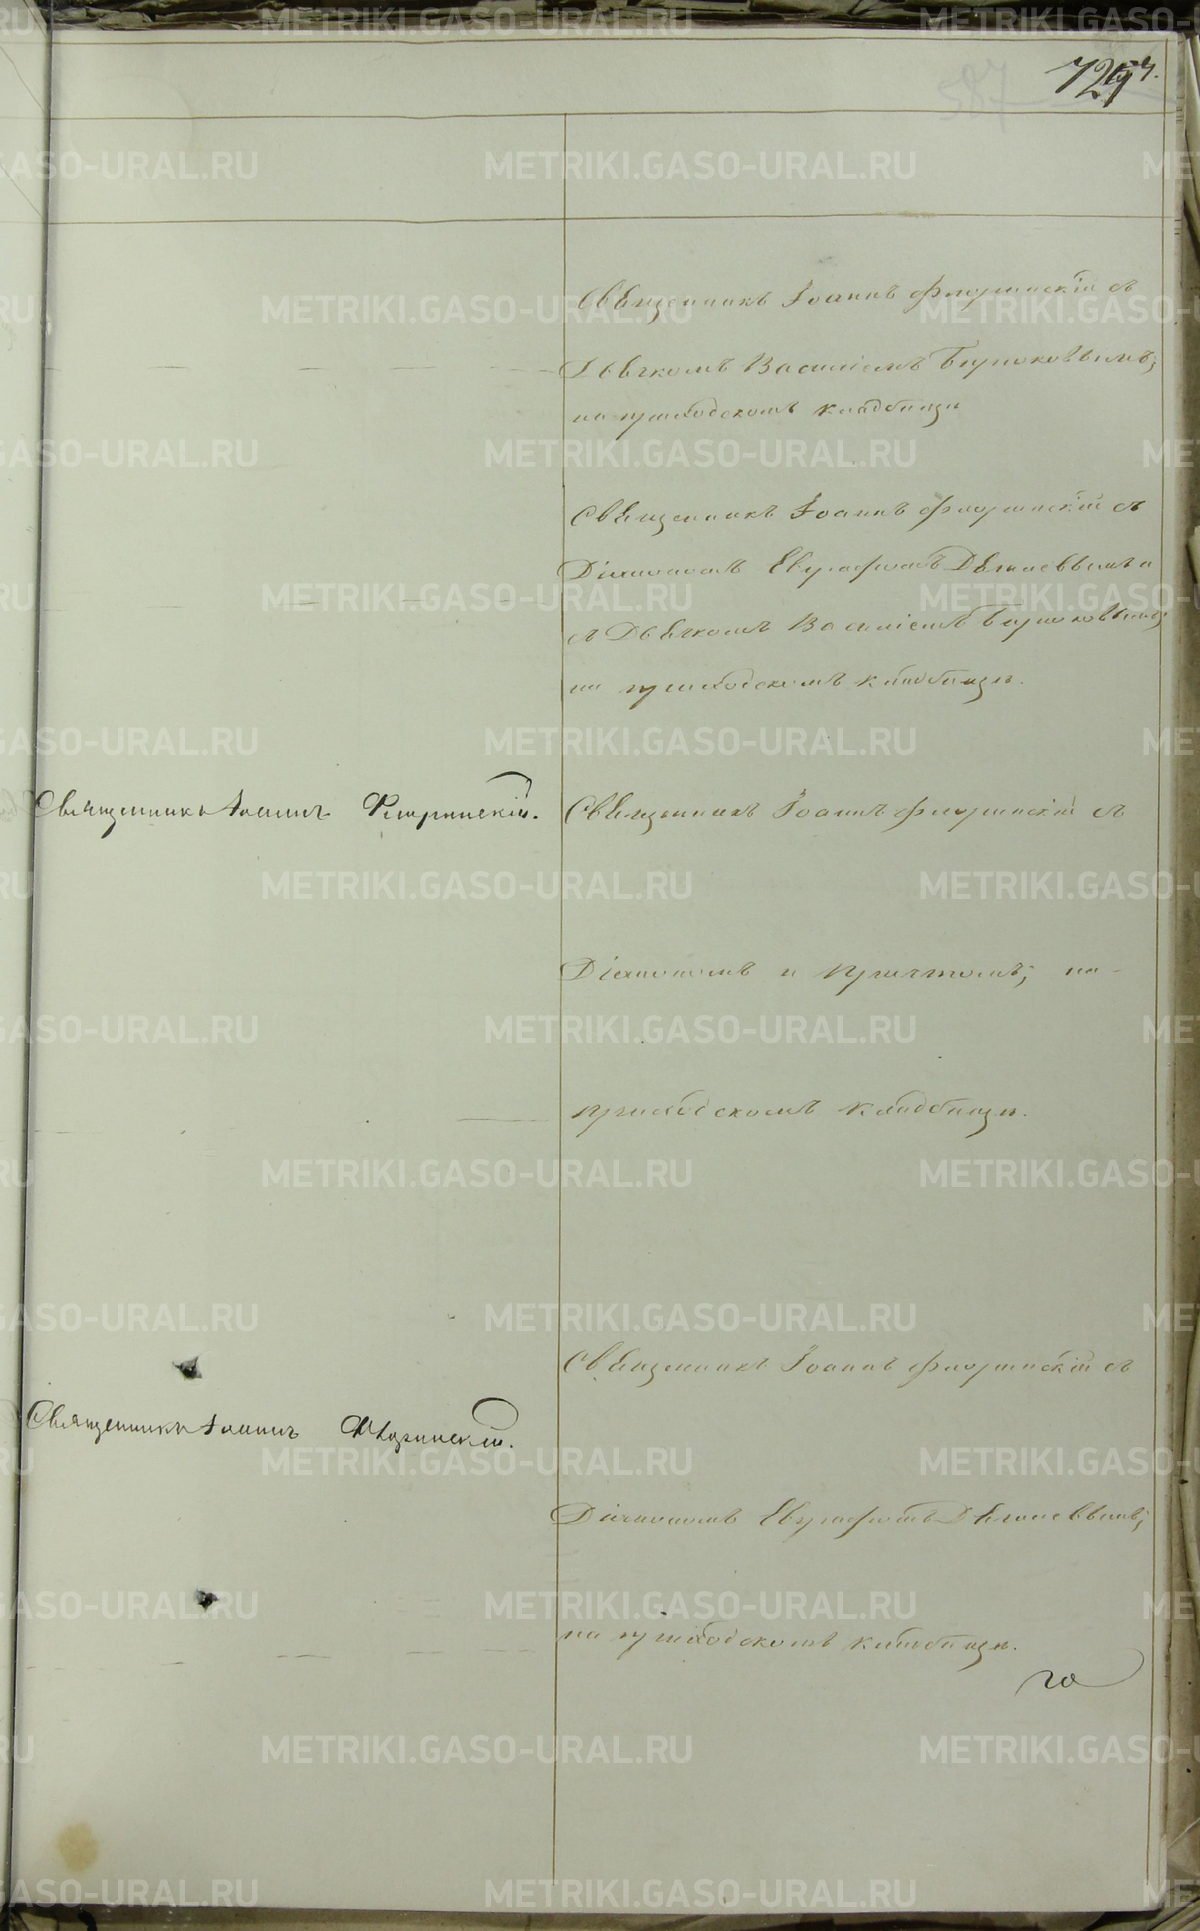 Священникъ Іоаннъ Флоринскій съ
Дьячкомъ Василіемъ Бирюковымъ;
на приходскомъ кладбищѣ
Священникъ Іоаннъ Флоринскій съ
Діакономъ Евграфомъ и
съ Дьячкомъ Василіемъ Бирюковымъ;
на приходскомъ кладбищѣ.
Священникъ Іоаннъ Флоринскій.
Священникъ Іоаннъ Флоринскій съ
Діакономъ и причтомъ; на
приходскомъ кладбищѣ.
Священникъ Іоаннъ Флоринскій съ
Священникъ Іоаннъ Флоринскій.
Діакономъ Евграфомъ
на приходскомъ кладбищѣ.
METRIKI.GASO-URAL.RU